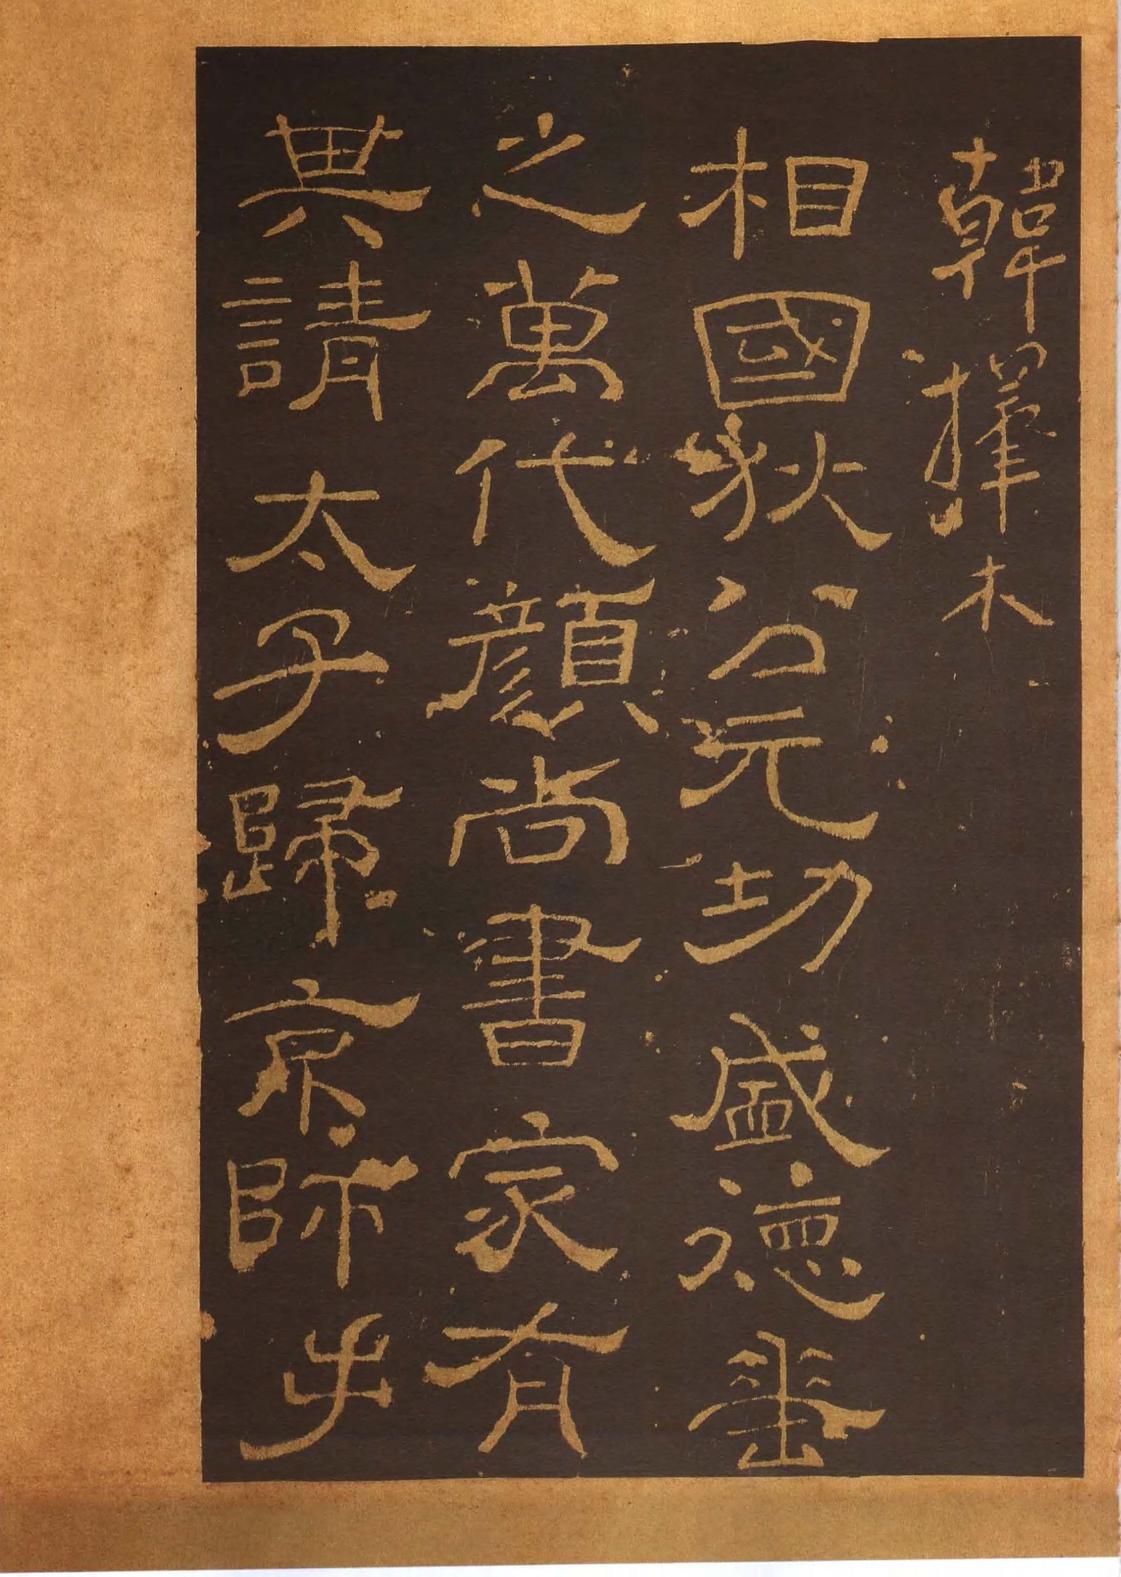 韓擇木
相國狄公元功盛德垂
之萬代顔尚書家有
其請太子歸京師手